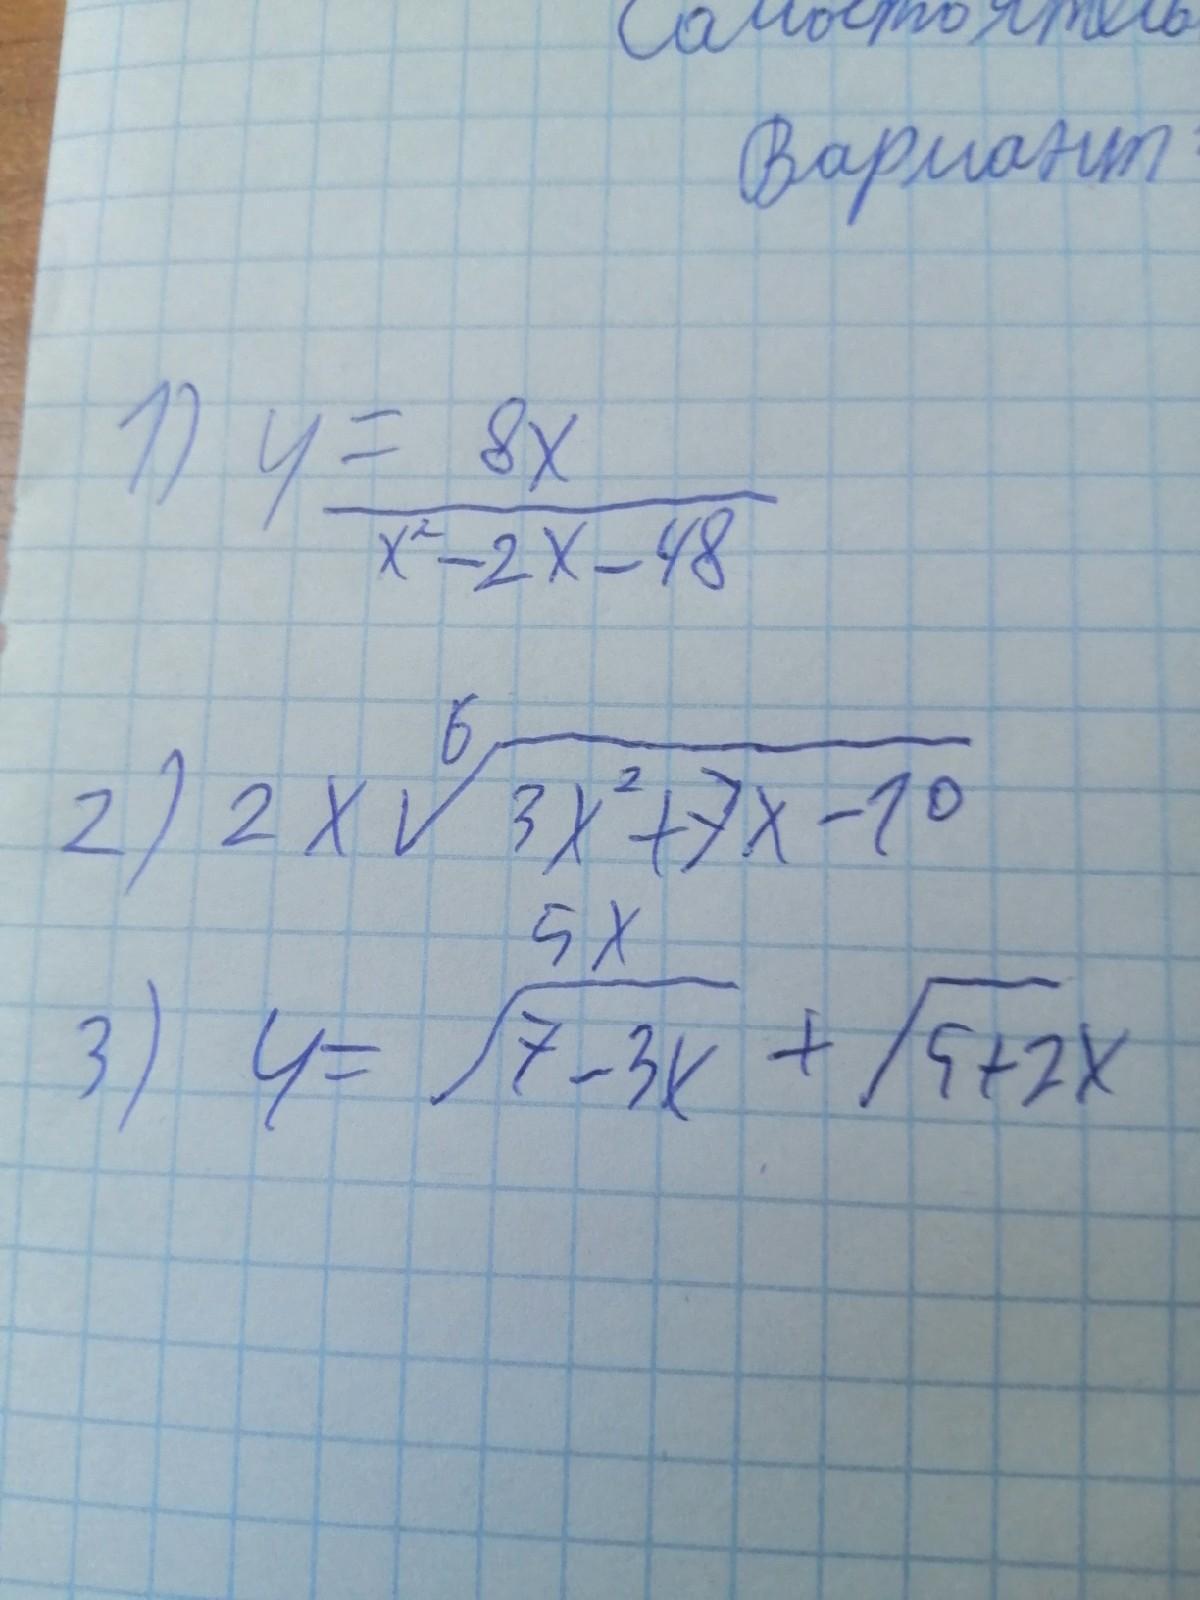 Самостоятель
Вариант
1) y = 8x
x² - 2x - 48
2) 2x ⁶√3x² + 7x - 10
5x
3) y = √7 - 3x + √5 + 2x